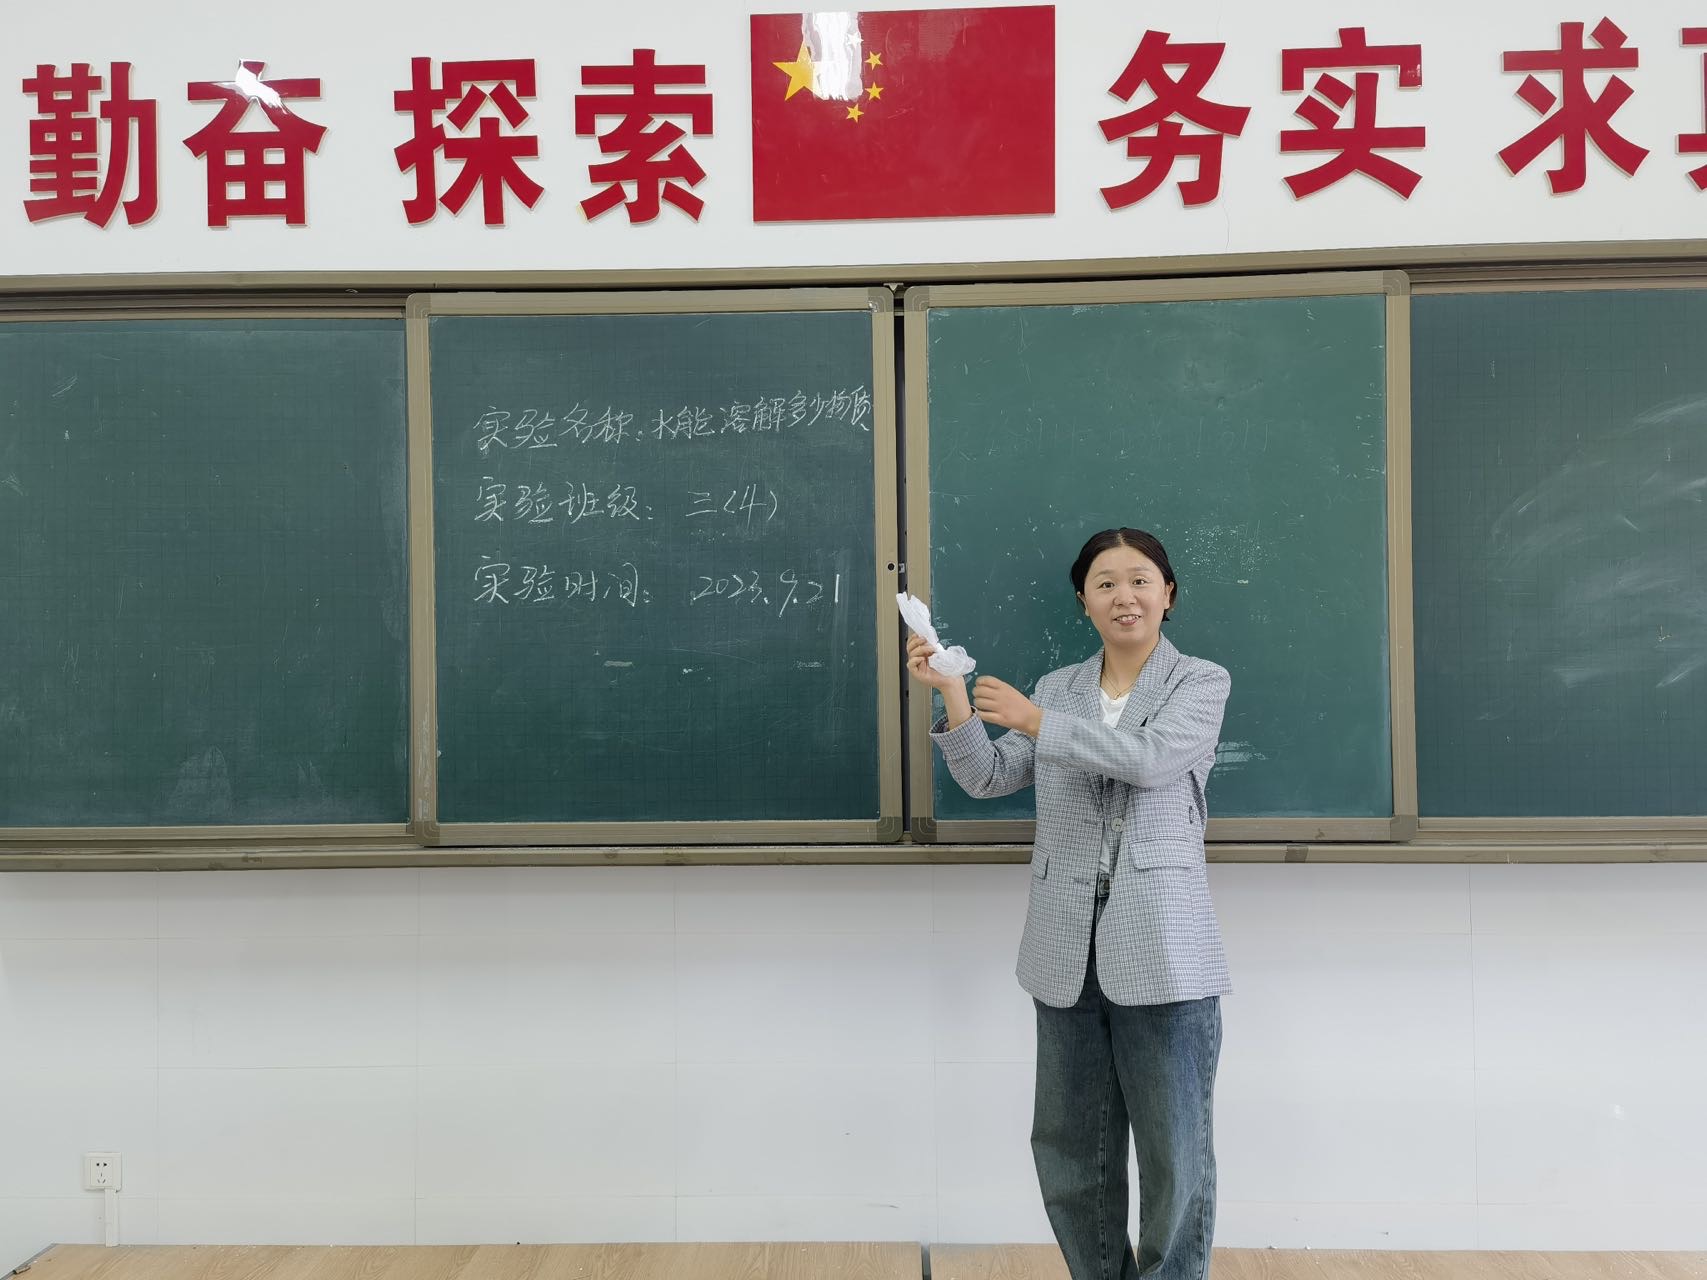 勤奋 探索 务实 求真
实验名称:水能溶解多少物质
实验班级:三(4)
实验时间:2023.9.21